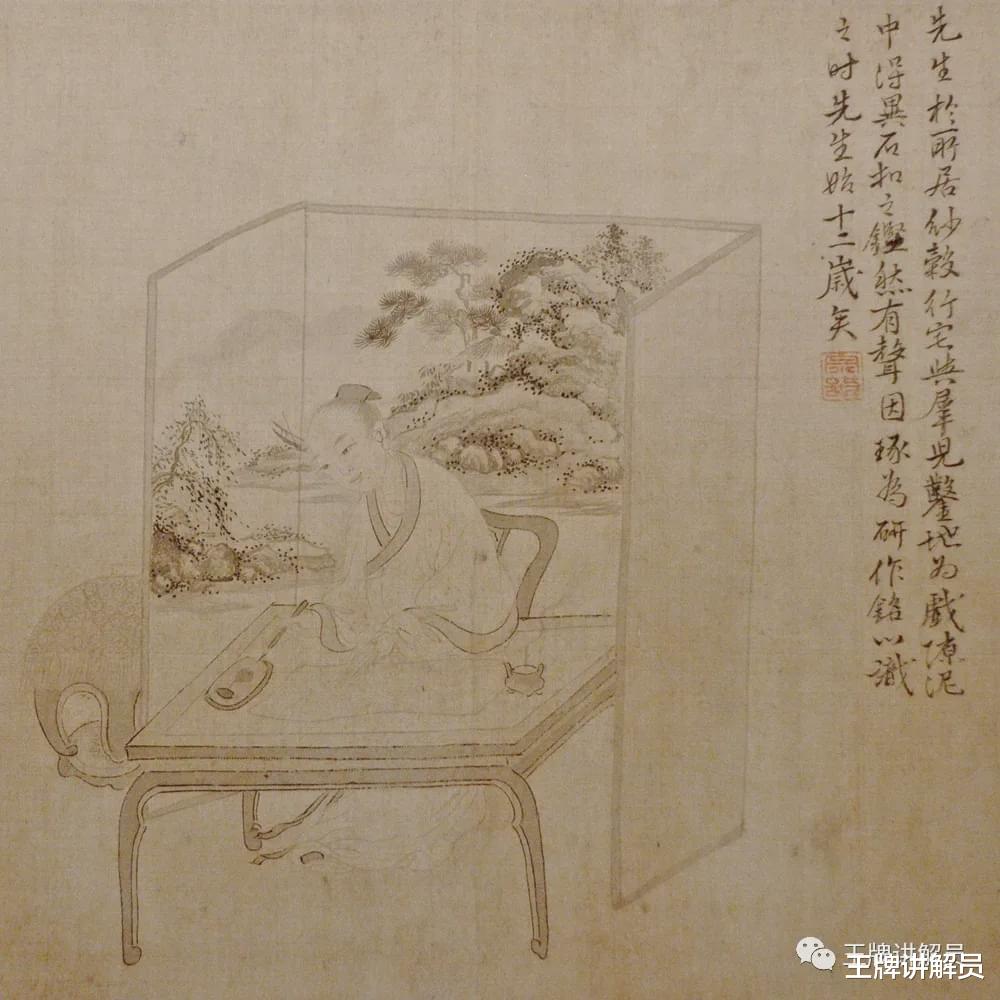 先生於所居紗縠行宅與羣兒鑿地为戲隙泥
中得異石扣之鏗然有聲因琢為研作銘以識
之时先生始十二歲矣
王牌讲解员
王牌讲解员